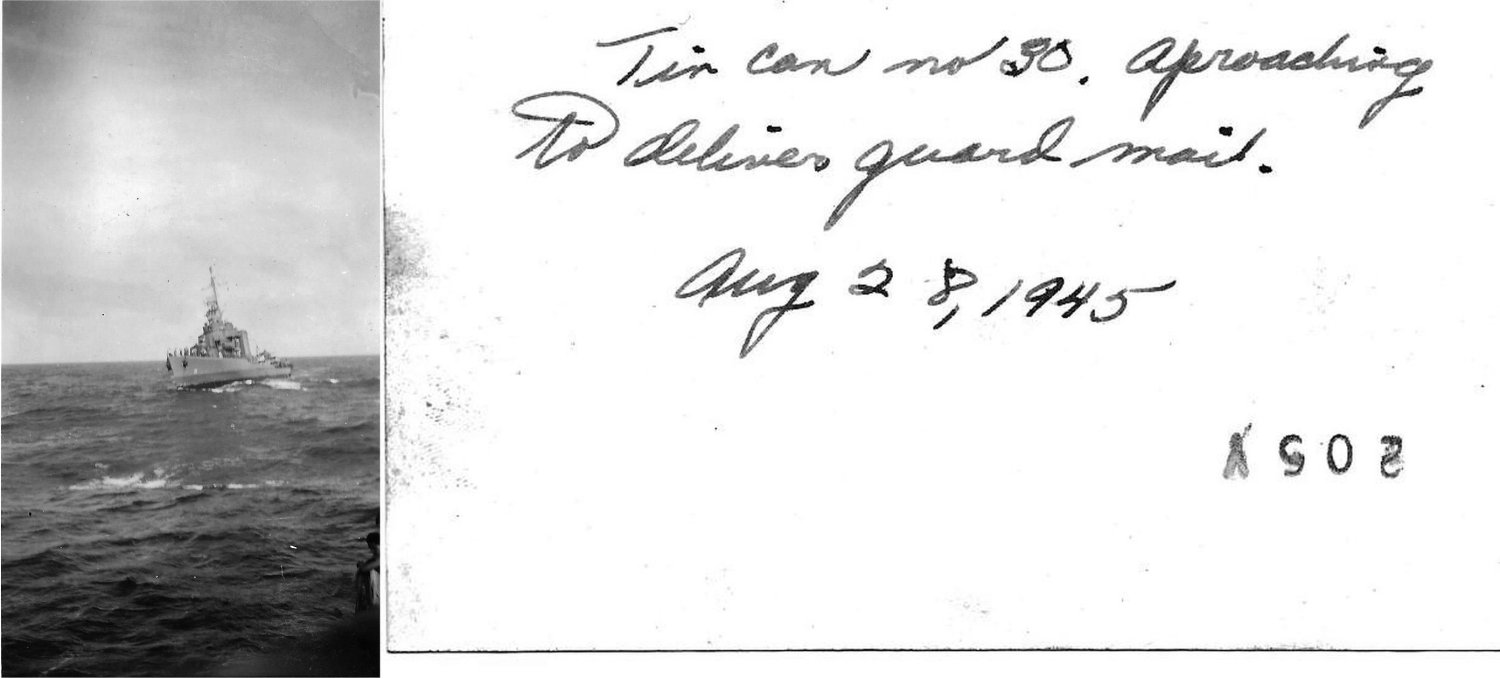 Tin can no 30. Aproaching
to deliver guard mail.
Aug 28, 1945